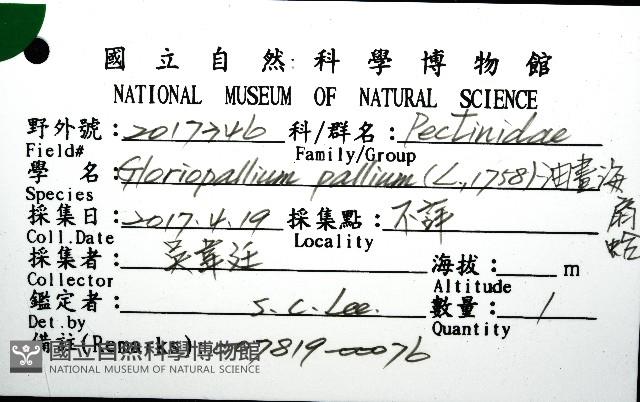 國立自然科學博物館
NATIONAL MUSEUM OF NATURAL SCIENCE
野外號：2017746 科/群名：Pectinidae
Field# Family/Group
學 名：Gloriopallium pallium (L., 1758) 油畫海扇蛤
Species
採集日：2017.4.19 採集點：不詳
Coll.Date Locality
採集者：吳韋廷 海拔：____m
Collector Altitude
鑑定者：S.C. Lee. 數量：1
Det.by Quantity
備註(Remarks) 7819-00076
國立自然科學博物館
NATIONAL MUSEUM OF NATURAL SCIENCE